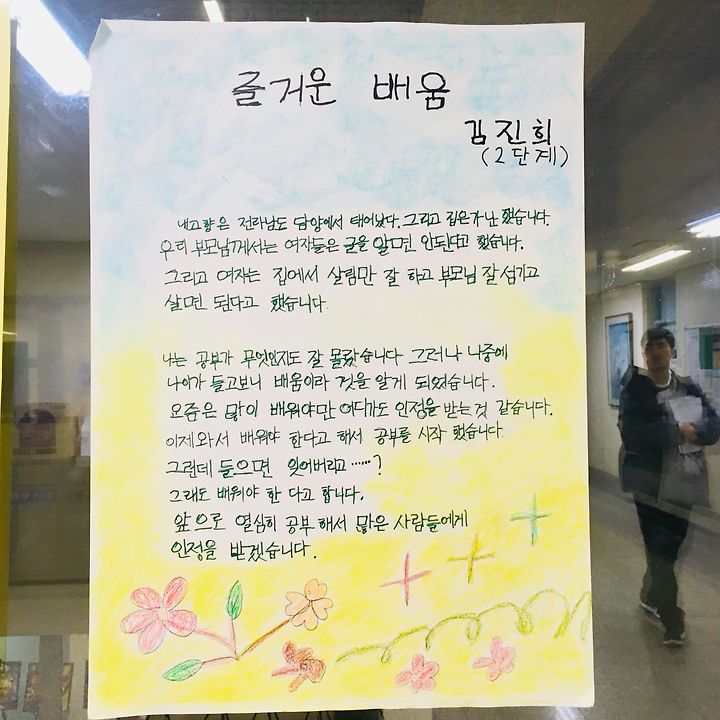 즐거운 배움
김진희
(2단계)
내고향은 전라남도 담양에서 태어났다. 그리고 집은가난 했습니다.
우리 부모님께서는 여자들은 글을 알면 안된다고 했습니다.
그리고 여자는 집에서 살림만 잘 하고 부모님 잘 섬기고
살면 된다고 했습니다.
나는 공부가 무엇인지도 잘 몰랐습니다 그러나 나중에
나이가 들고보니 배움이라 것을 알게 되었습니다.
요즘은 많이 배워야만 어디가도 인정을 받는것 같습니다.
이제와서 배워야 한다고 해서 공부를 시작 했습니다
그런데 들으면 잊어버리고……?
그래도 배워야 한 다고 합니다.
앞으로 열심히 공부 해서 많은 사람들에게
인정을 받겠습니다.